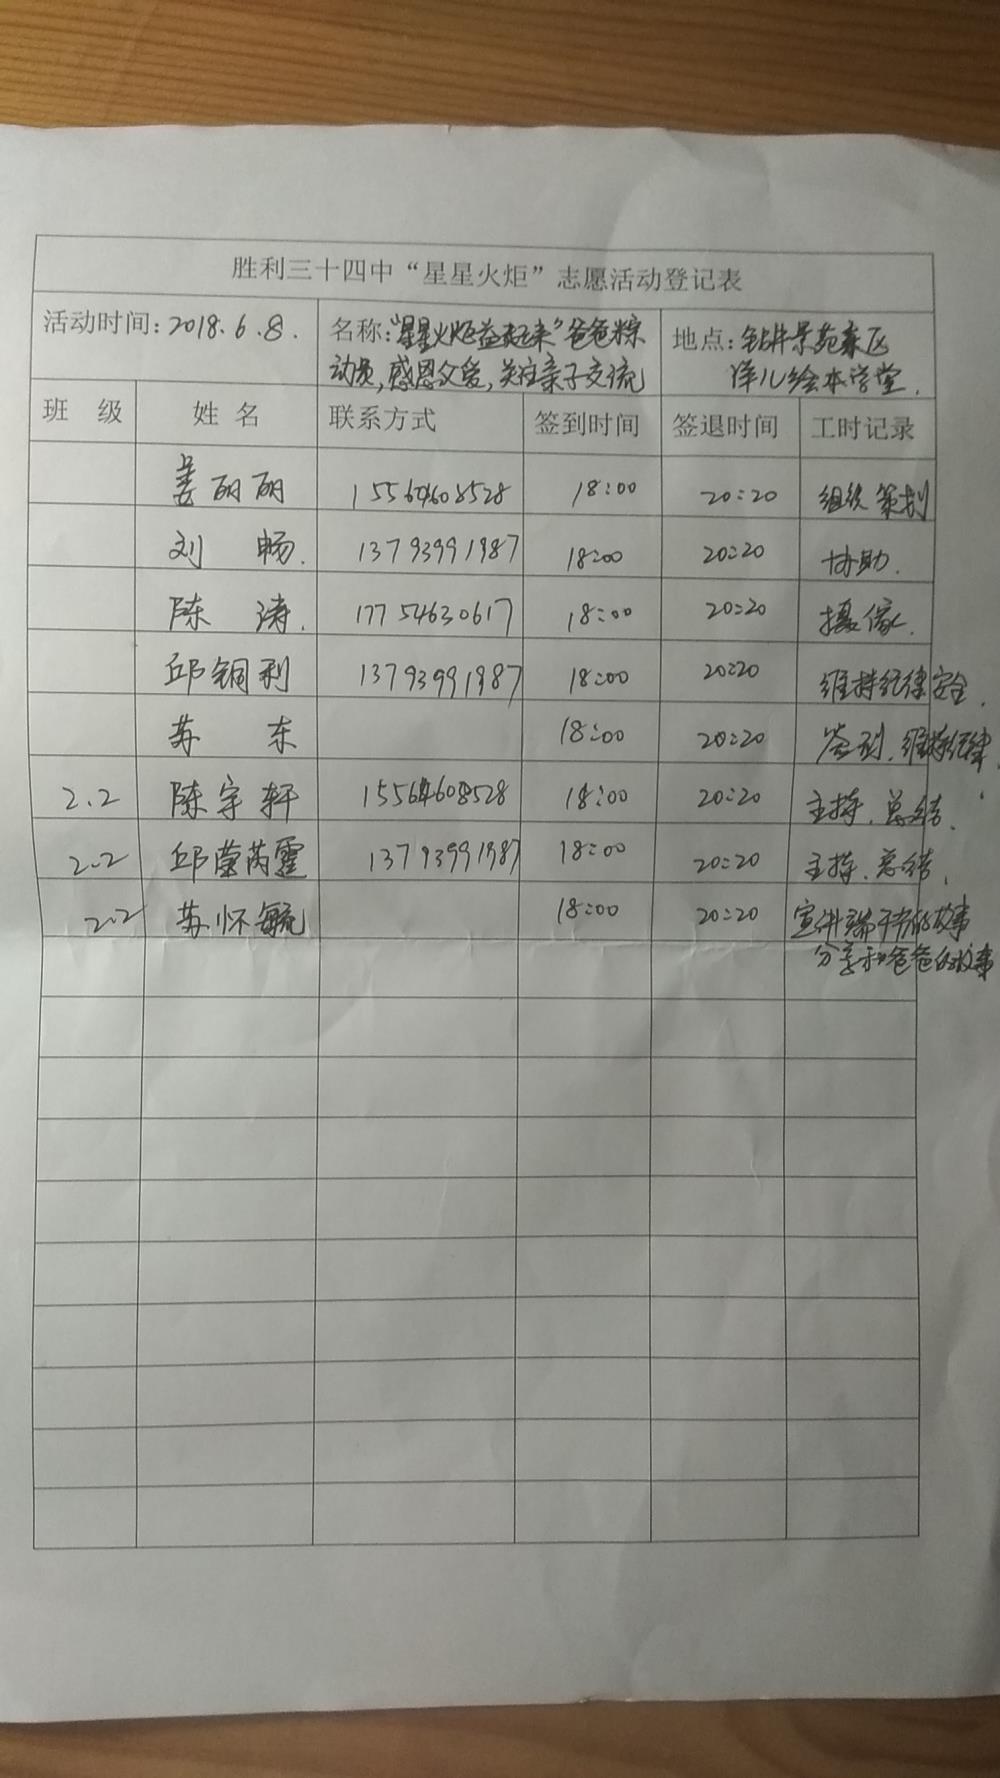 胜利三十四中“星星火炬”志愿活动登记表
活动时间:2018.6.8. 名称:“星星火炬益起来”爸爸粽 地点:钻井景苑东区
动员,感恩父爱,关注亲子交流 绘本学堂.
班 级 姓 名 联系方式 签到时间 签退时间 工时记录
姜丽丽 15564608528 18:00 20:20 组织策划
刘 畅. 13793991987 18:00 20:20 协助.
陈 涛. 17754630617 18:00 20:20 摄像.
邱铜利 13793991987 18:00 20:20 维持纪律安全.
苏 东 18:00 20:20 签到.维持纪律.
2.2 陈宇轩 15564608528 18:00 20:20 主持.总结.
2.2 邱莹芮霆 13793991987 18:00 20:20 主持.总结.
2.2 苏怀毓 18:00 20:20 宣讲端午节的故事
分享和爸爸的故事